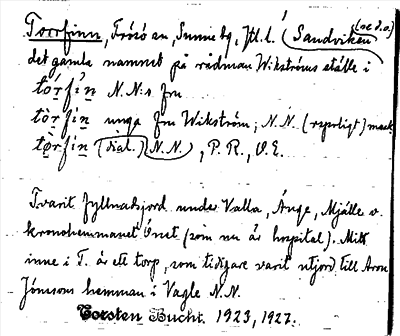 Torrfinn, Frösö sn, Sunne tg, Jtl. l. (Sandviken (se d.o.)
det gamla namnet på rådman Wikströms ställe i
tórfı̀n N.N:s fru
tòrfín unga fru Wikström; N.N. (
tòrfin (dial.) N.N., P.R., O.E.
Tvarit fyllnadsjord under Valla, Änge, Mjälle o.
kronohemmanet Önet (som nu är hospital). Mitt
inne i T. är ett torp, som tidigare varit utjord till Aron
Jönsons hemman i Vagle N.N.
Torsten Bucht. 1923, 1927.